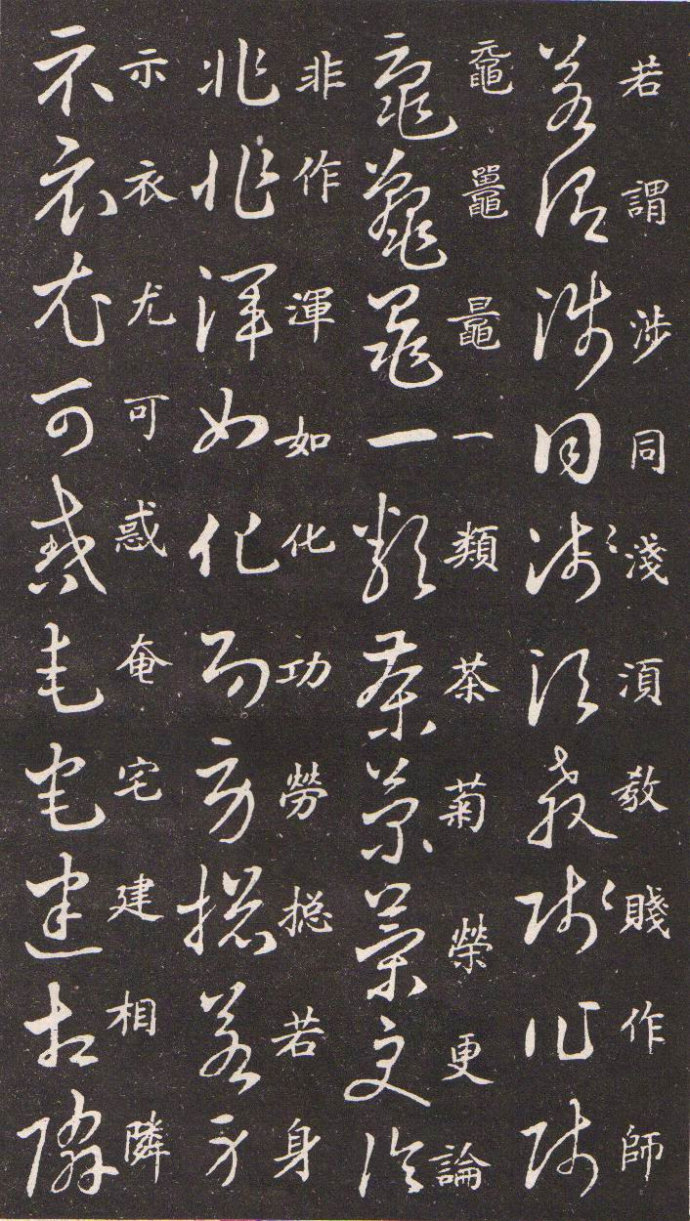 若謂涉同淺須教賤作師
黿鼉鼂一類茶菊榮更論
非作渾如化功勞摠若身
示衣尤可惑奄宅建相隣